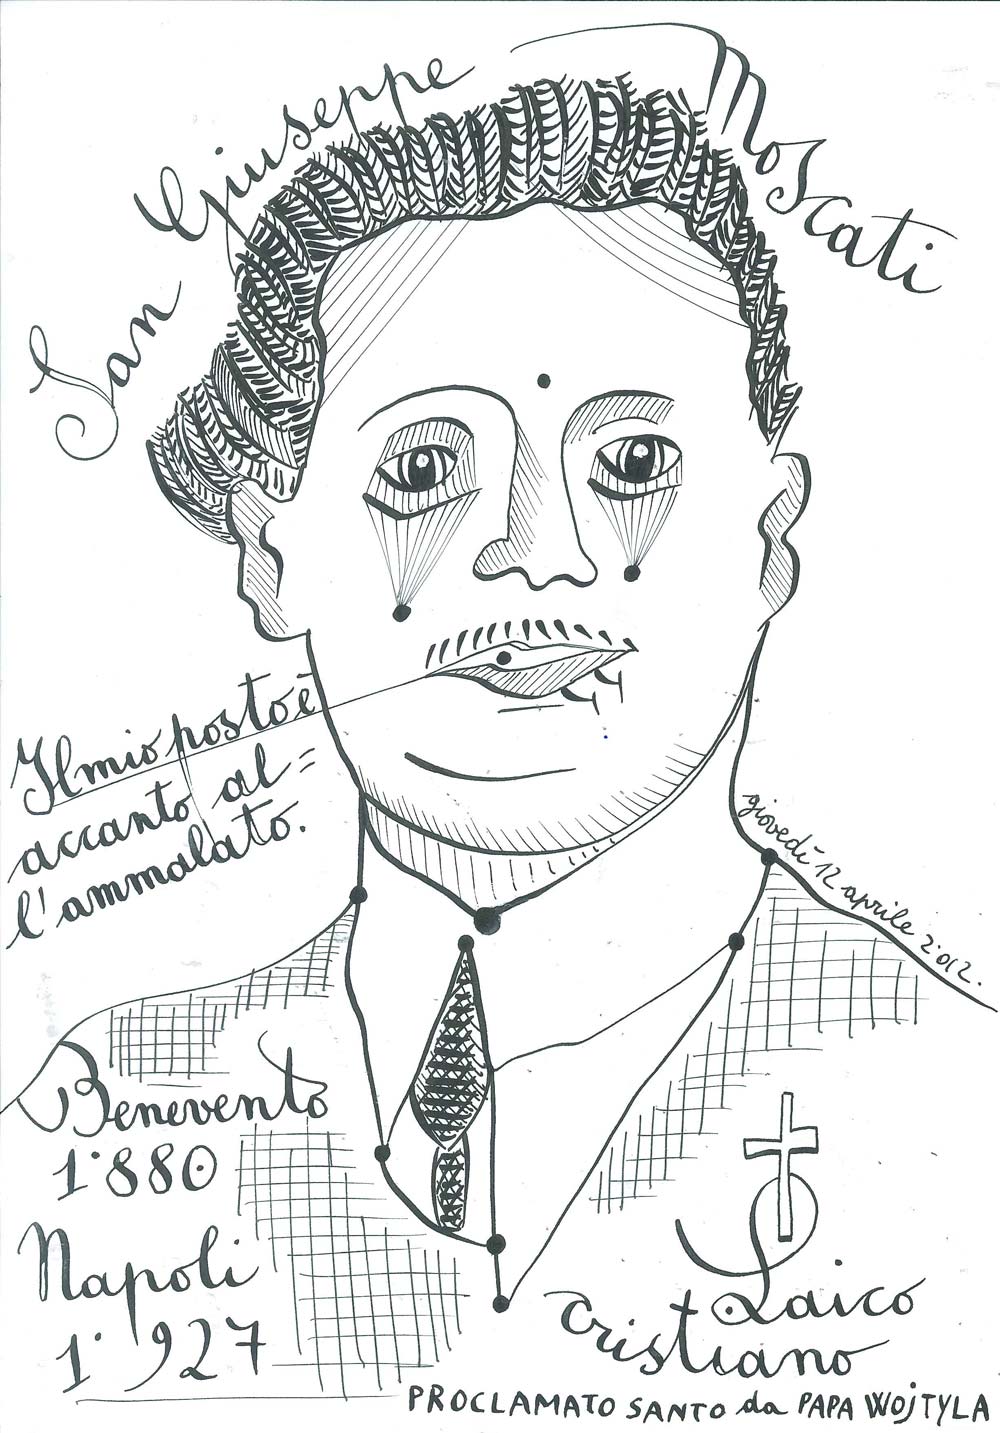 San Giuseppe Moscati
Il mio posto è
accanto al=
l'ammalato.
giovedì 12 aprile 2·012.
Benevento
1·880
Napoli
1·927
Laico
Cristiano
PROCLAMATO SANTO da PAPA WOJTYLA